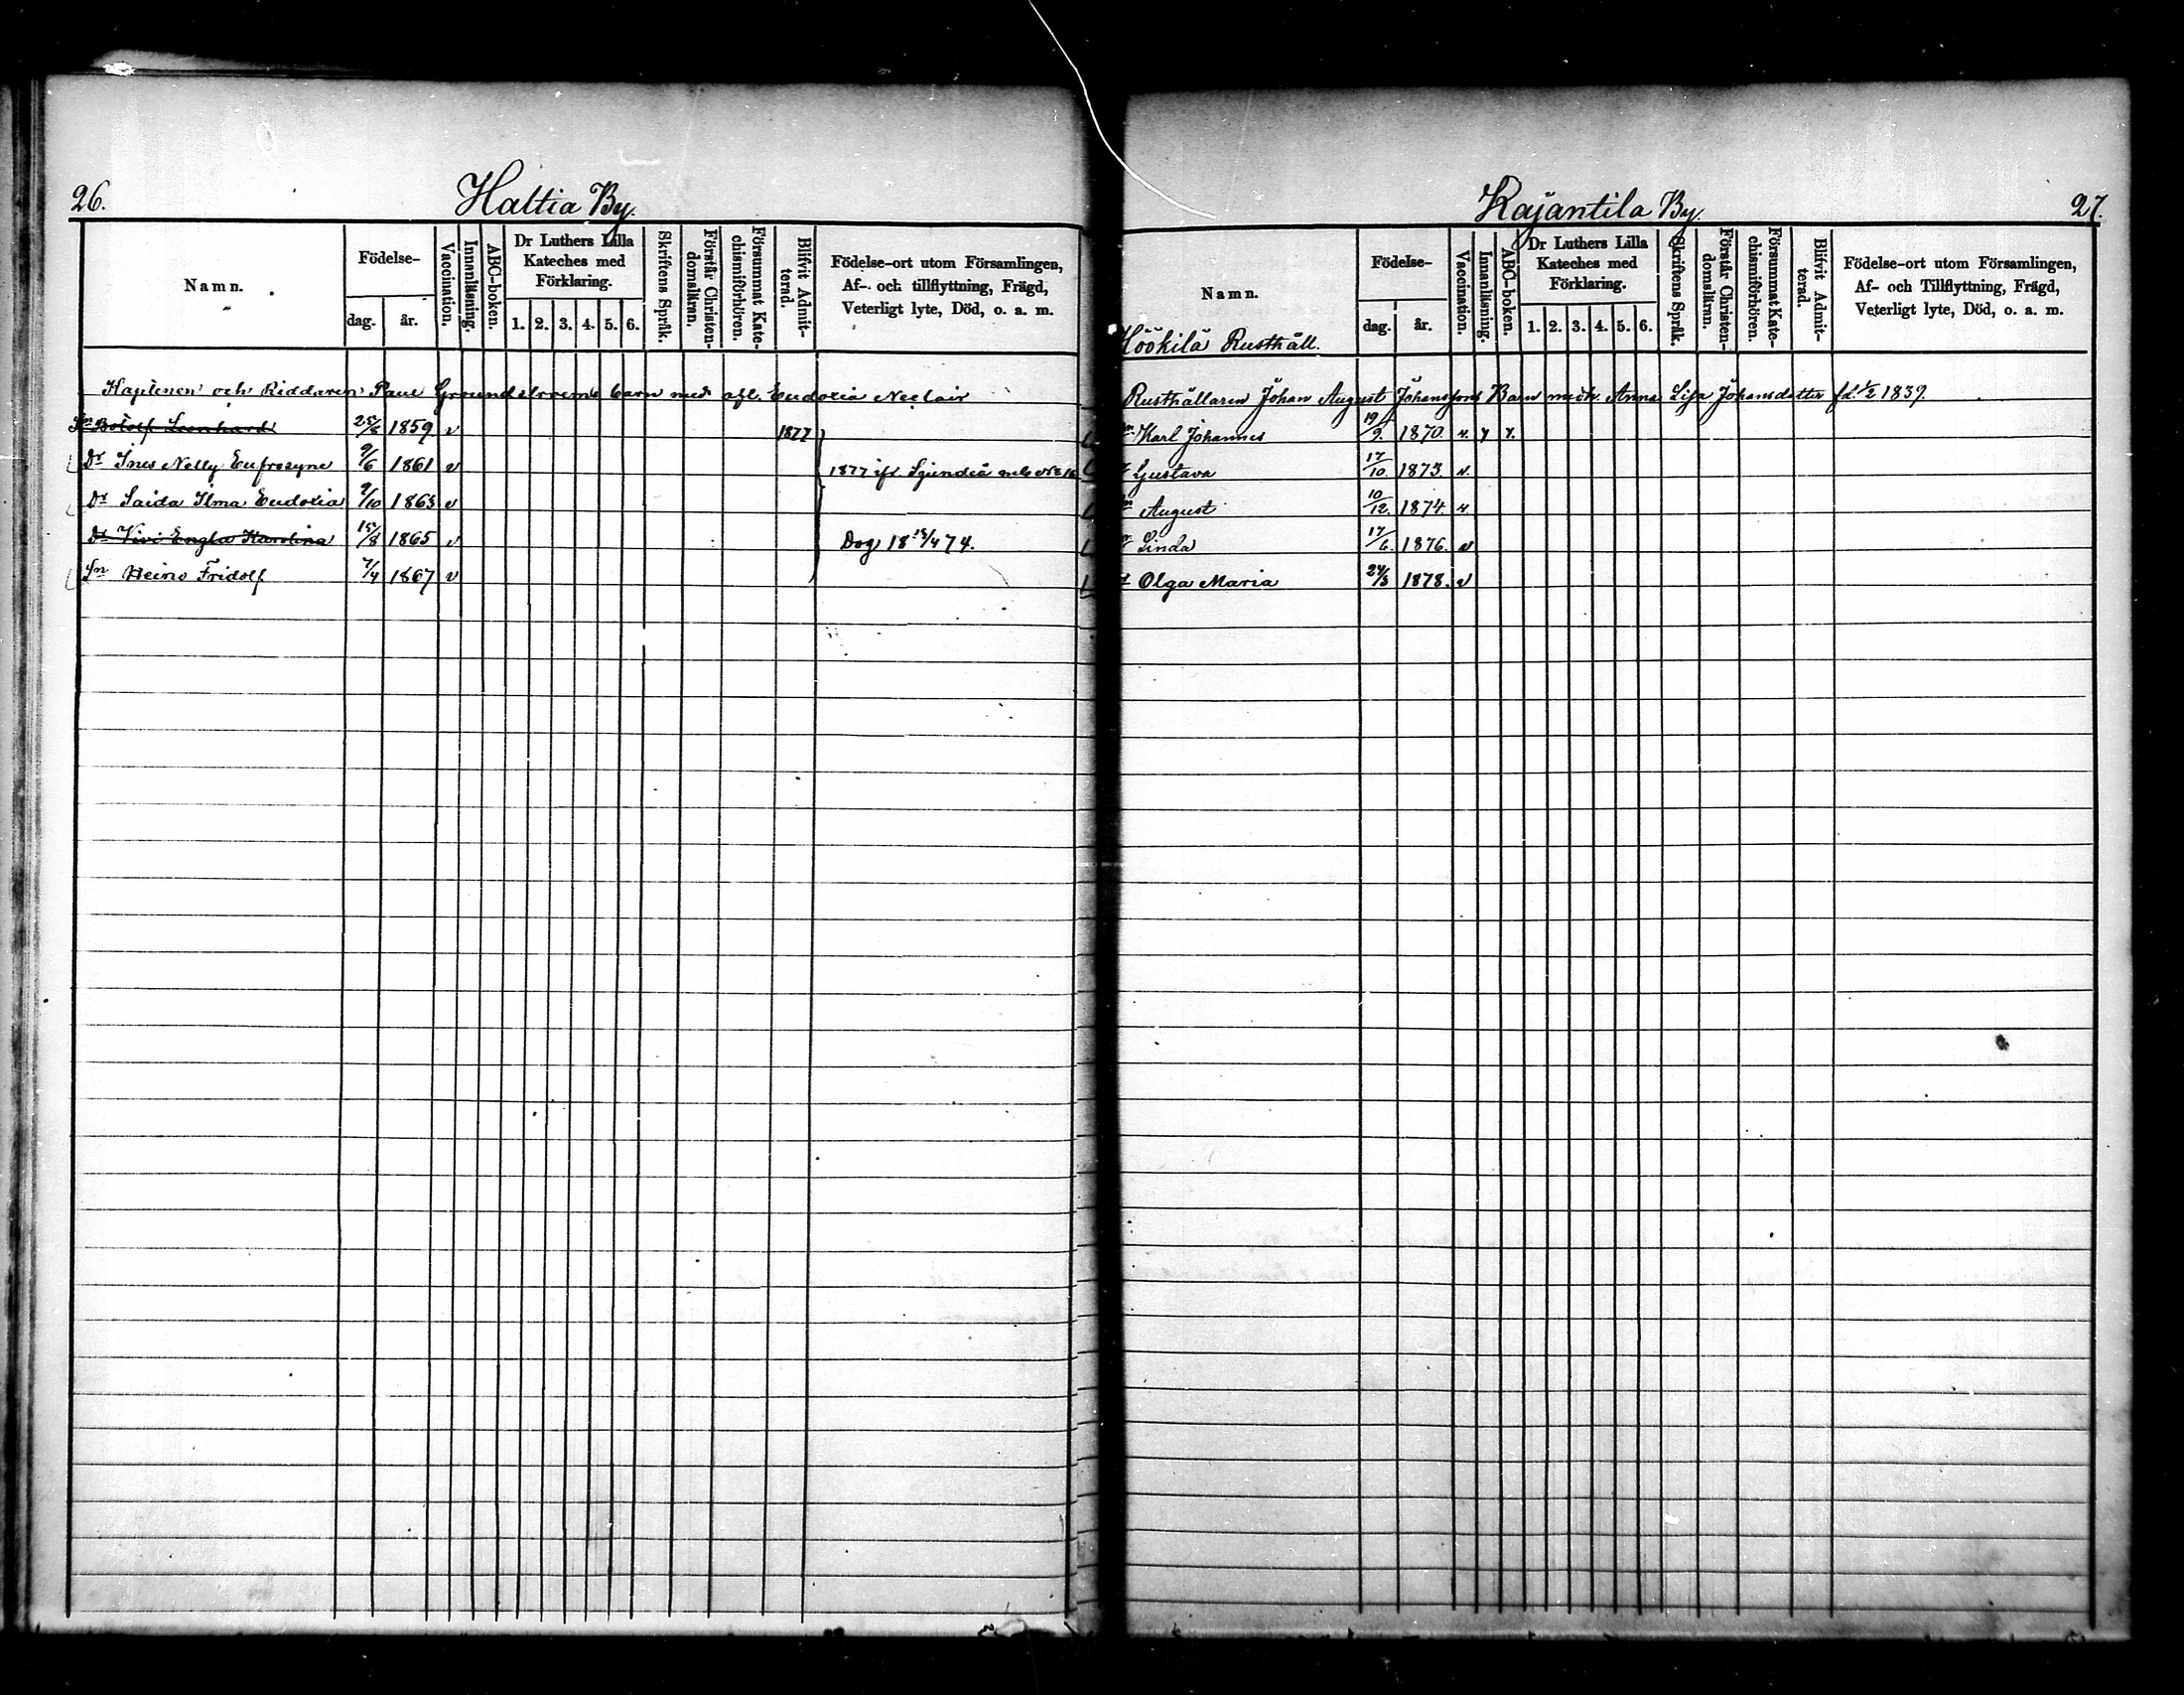 26.
Haltia By.
Namn.
Födelse-
dag. år.
Vaccination.
Innanläsning.
ABC-boken.
Dr Luthers Lilla Kateches med Förklaring.
1. 2. 3. 4. 5. 6.
Skriftens Språk.
Förstår Christen-domsläran.
Försummat Kate-chismiförhören.
Blifvit Admit-terad.
Födelse-ort utom Församlingen, Af- och tillflyttning, Frägd, Veterligt lyte, Död, o. a. m.
Kaptenen och Riddaren Paul Grundstroems barn med afl. Eudoxia Neclair
Sn Botolf Leonhard 25/8 1859 v 1877
Dr Ines Nelly Eufrosyne 9/6 1861 v 1877 ifr Sjundeå
Dr Saida Ilma Eudoxia 9/10 1863 v
Dr Vivi Engla Karolina 15/8 1865 v Dog 18 /4 74.
Sn Heino Fridolf 7/4 1867 v
Kajantila By.
27.
Namn.
Höökilä Rusthåll.
Födelse-
dag. år.
Vaccination.
Innanläsning.
ABC-boken.
Dr Luthers Lilla Kateches med Förklaring.
1. 2. 3. 4. 5. 6.
Skriftens Språk.
Förstår Christen-domsläran.
Försummat Kate-chismiförhören.
Blifvit Admit-terad.
Födelse-ort utom Församlingen, Af- och Tillflyttning, Frägd, Veterligt lyte, Död, o. a. m.
Rusthållaren Johan August Johanssons Barn med h. Anna Lisa Johansdotter fd. 1/2 1839.
Karl Johannes 19/9. 1870. v. y y.
Gustava 17/10 1873. v.
August 10/12. 1874. v.
Linda 17/6. 1876. v
Olga Maria 24/3 1878. v